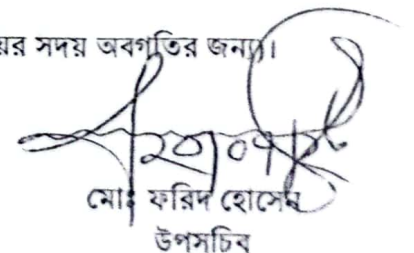 য়র সদয় অবগতির জন্য।
মোঃ ফরিদ হোসেন
উপসচিব